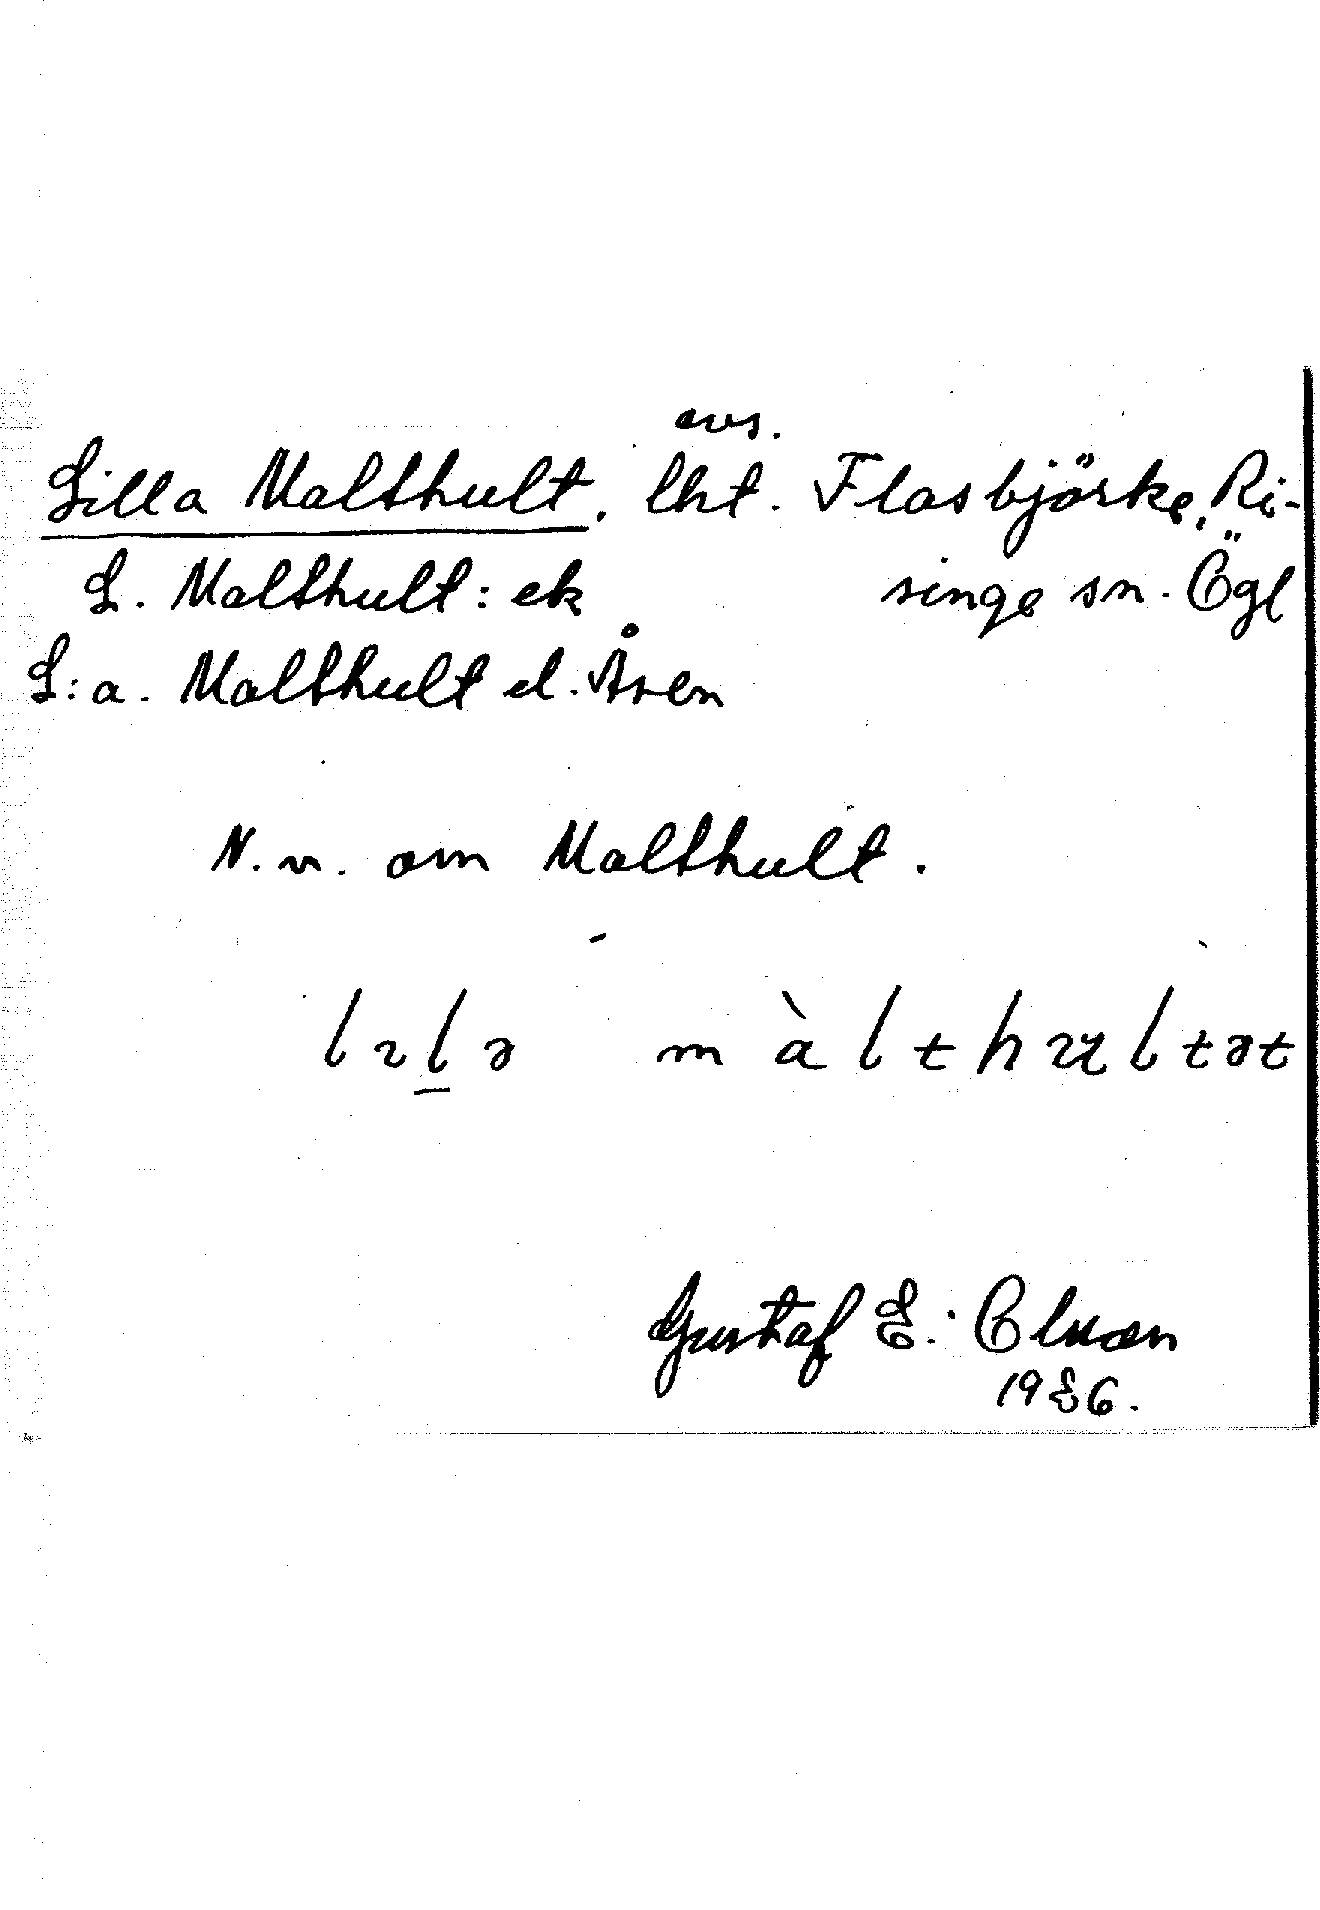 avs.
Lilla Malthult, lht. Flasbjörke, Ri-
L. Malthult: ek singe sn. Ögl
L:a. Malthult el. Åsen
N. v. om Malthult.
màlthultət
Gustaf E.
1936.